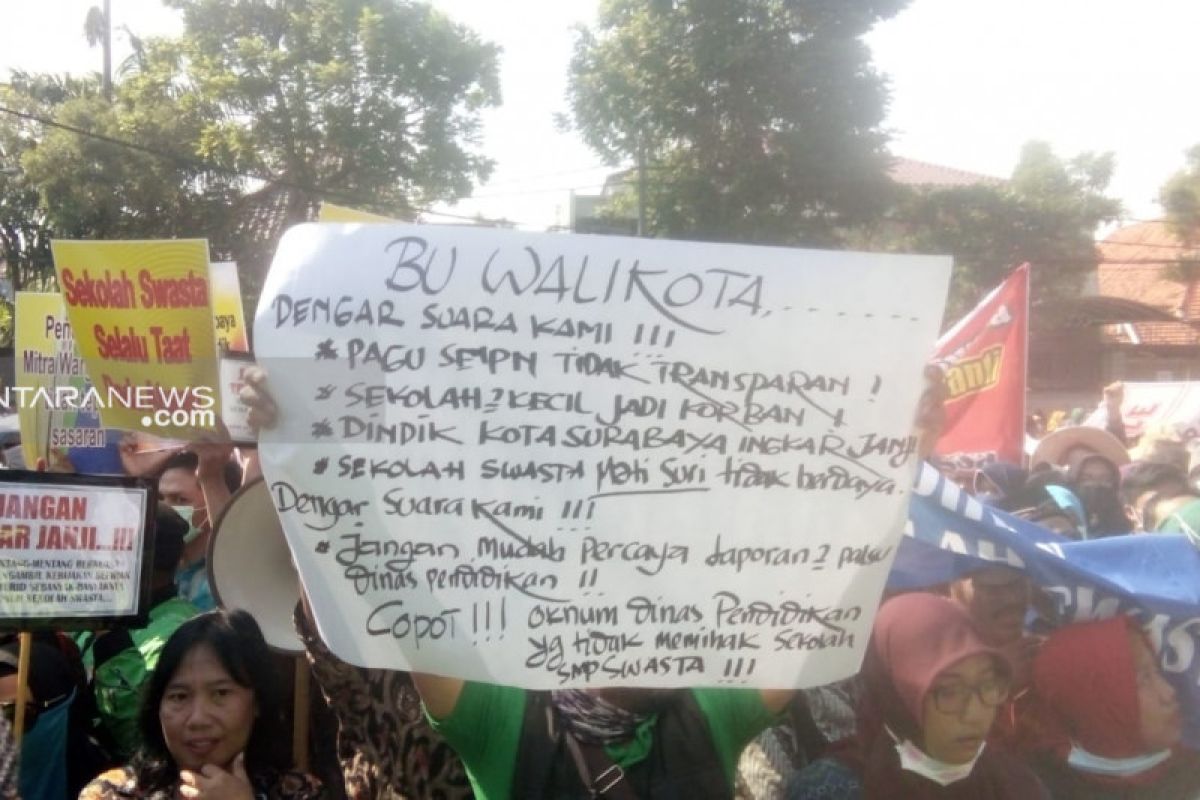 BU WALIKOTA,......
DENGAR SUARA KAMI !!!
* PAGU SMPN TIDAK TRANSPARAN !
* SEKOLAH2 KECIL JADI KORBAN !
* DINDIK KOTA SURABAYA INGKAR JANJI
* SEKOLAH SWASTA Mati Suri tidak berdaya.
Dengar Suara Kami !!!
* Jangan Mudah percaya laporan2 palsu
dinas pendidikan !!
COPOT !!! oknum dinas Pendidikan
yg tidak memihak sekolah
SMP SWASTA !!!
Sekolah Swasta
Selalu Taat
Mitra
sasaran
ANTARANEWS
.com
JANGAN
AR JANJI...!!!
NTANG-MENTANG
NGAMBIL KEBIJAKAN
URID SEBANYAK-BANYAKNYA
SEKOLAH SWASTA